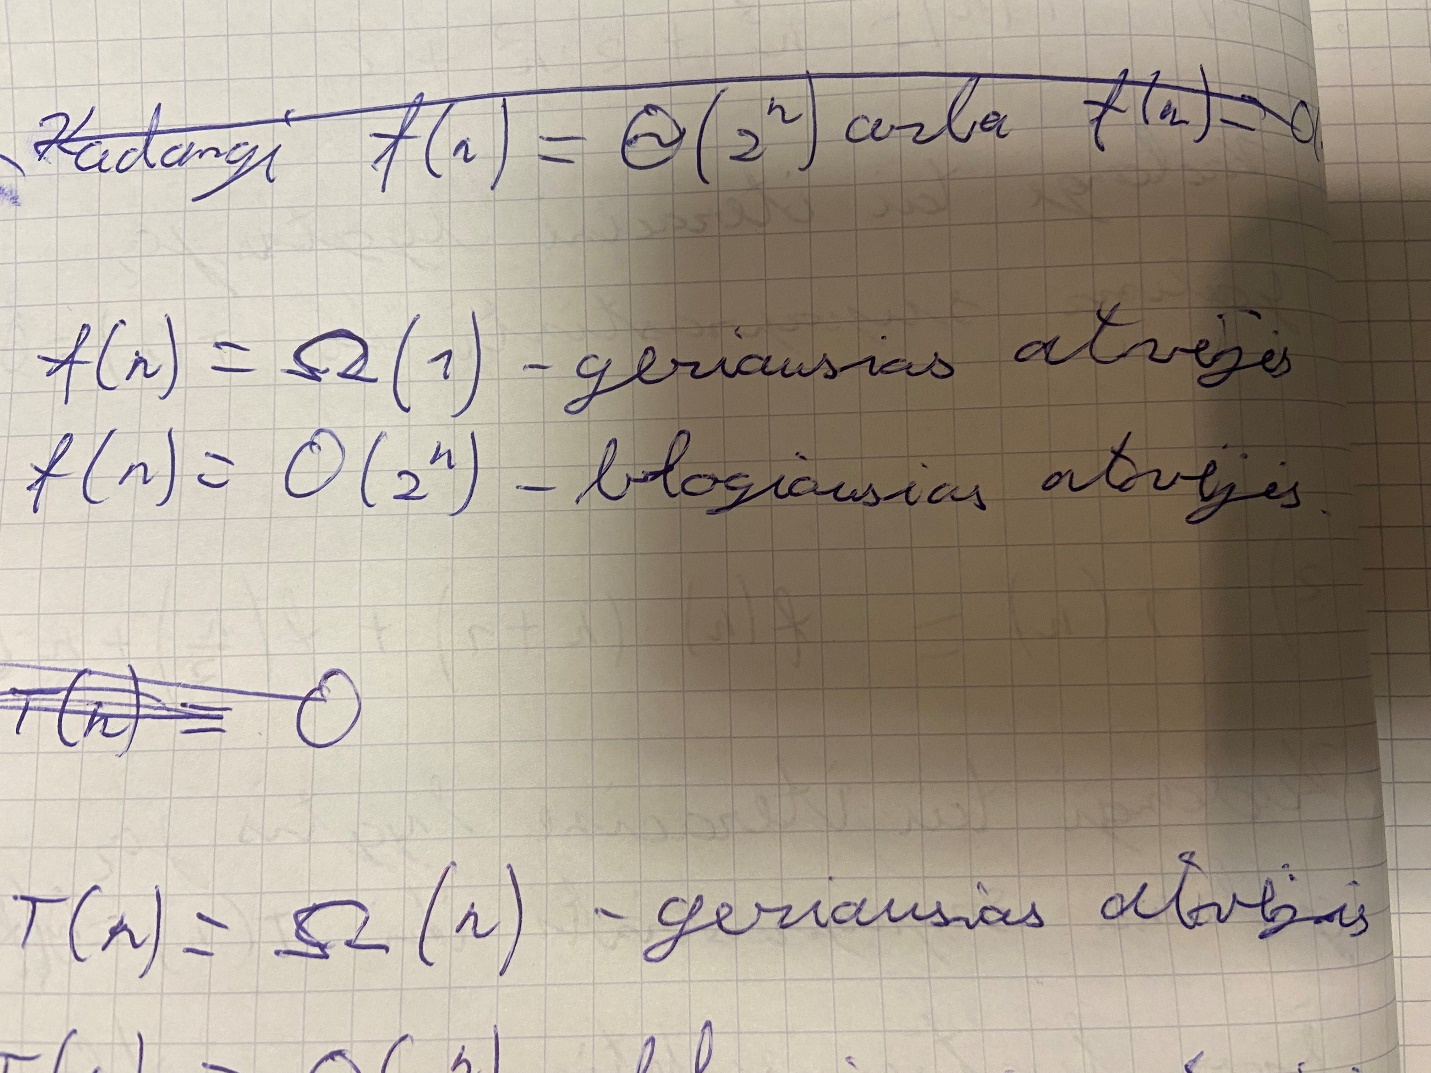 Kadangi f(n) = Θ(2ⁿ) arba f(n) = O
f(n) = Ω(1) - geriausias atvėjis
f(n) = O(2ⁿ) - blogiausias atvėjis.
T(n) = O
T(n) = Ω(n) - geriausias atvėjis